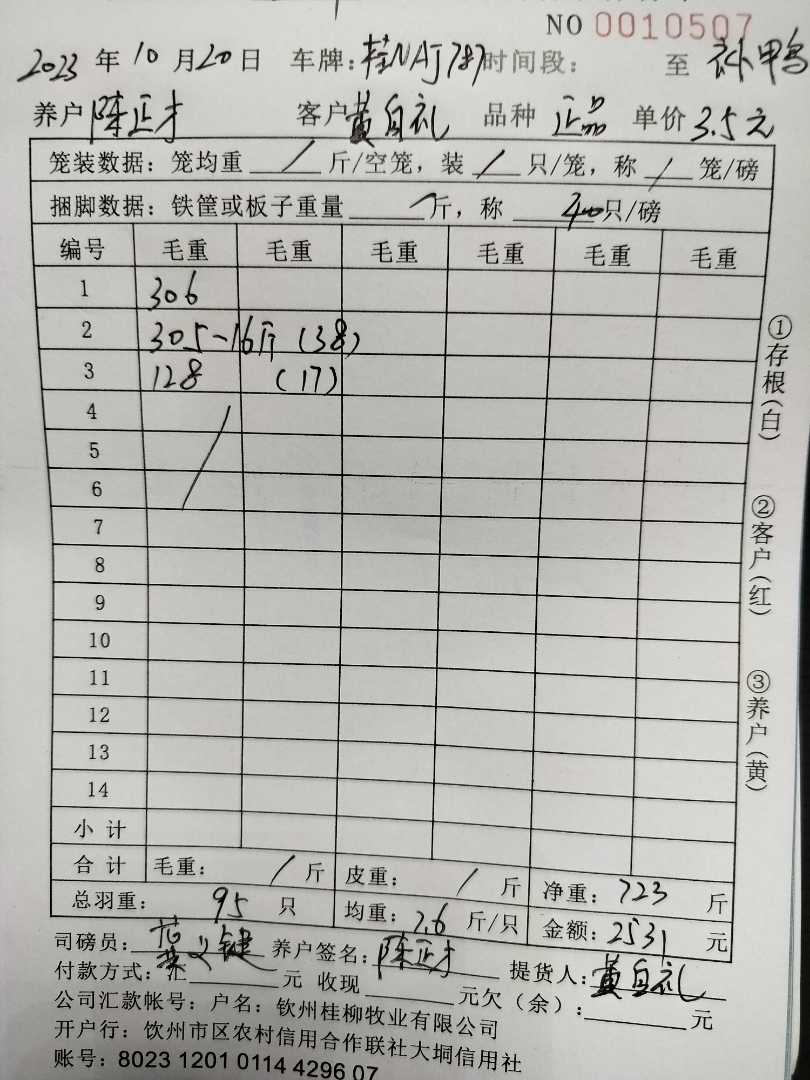 NO 0010507
2023 年 10 月 20 日 车牌：桂NAJ787 时间段： 至 补鸭
养户 陈正才 客户 黄自礼 品种 正品 单价 3.5元
笼装数据：笼均重 / 斤/空笼，装 / 只/笼，称 / 笼/磅
捆脚数据：铁筐或板子重量 / 斤，称 40 只/磅
编号 毛重 毛重 毛重 毛重 毛重 毛重
1 306
2 305-16斤 (38)
3 128 (17)
4
5
6
7
8
9
10
11
12
13
14
小计
合计 毛重： / 斤 皮重： / 斤 净重：723 斤
总羽重： 95 只 均重：7.6 斤/只 金额：2531 元
司磅员： 义键 养户签名：陈正才 提货人：黄自礼
付款方式：汇 元 收现 元欠（余）： 元
公司汇款帐号：户名：钦州桂柳牧业有限公司
开户行：饮州市区农村信用合作联社大垌信用社
账号：8023 1201 0114 4296 07
①存根（白）
②客户（红）
③养户（黄）